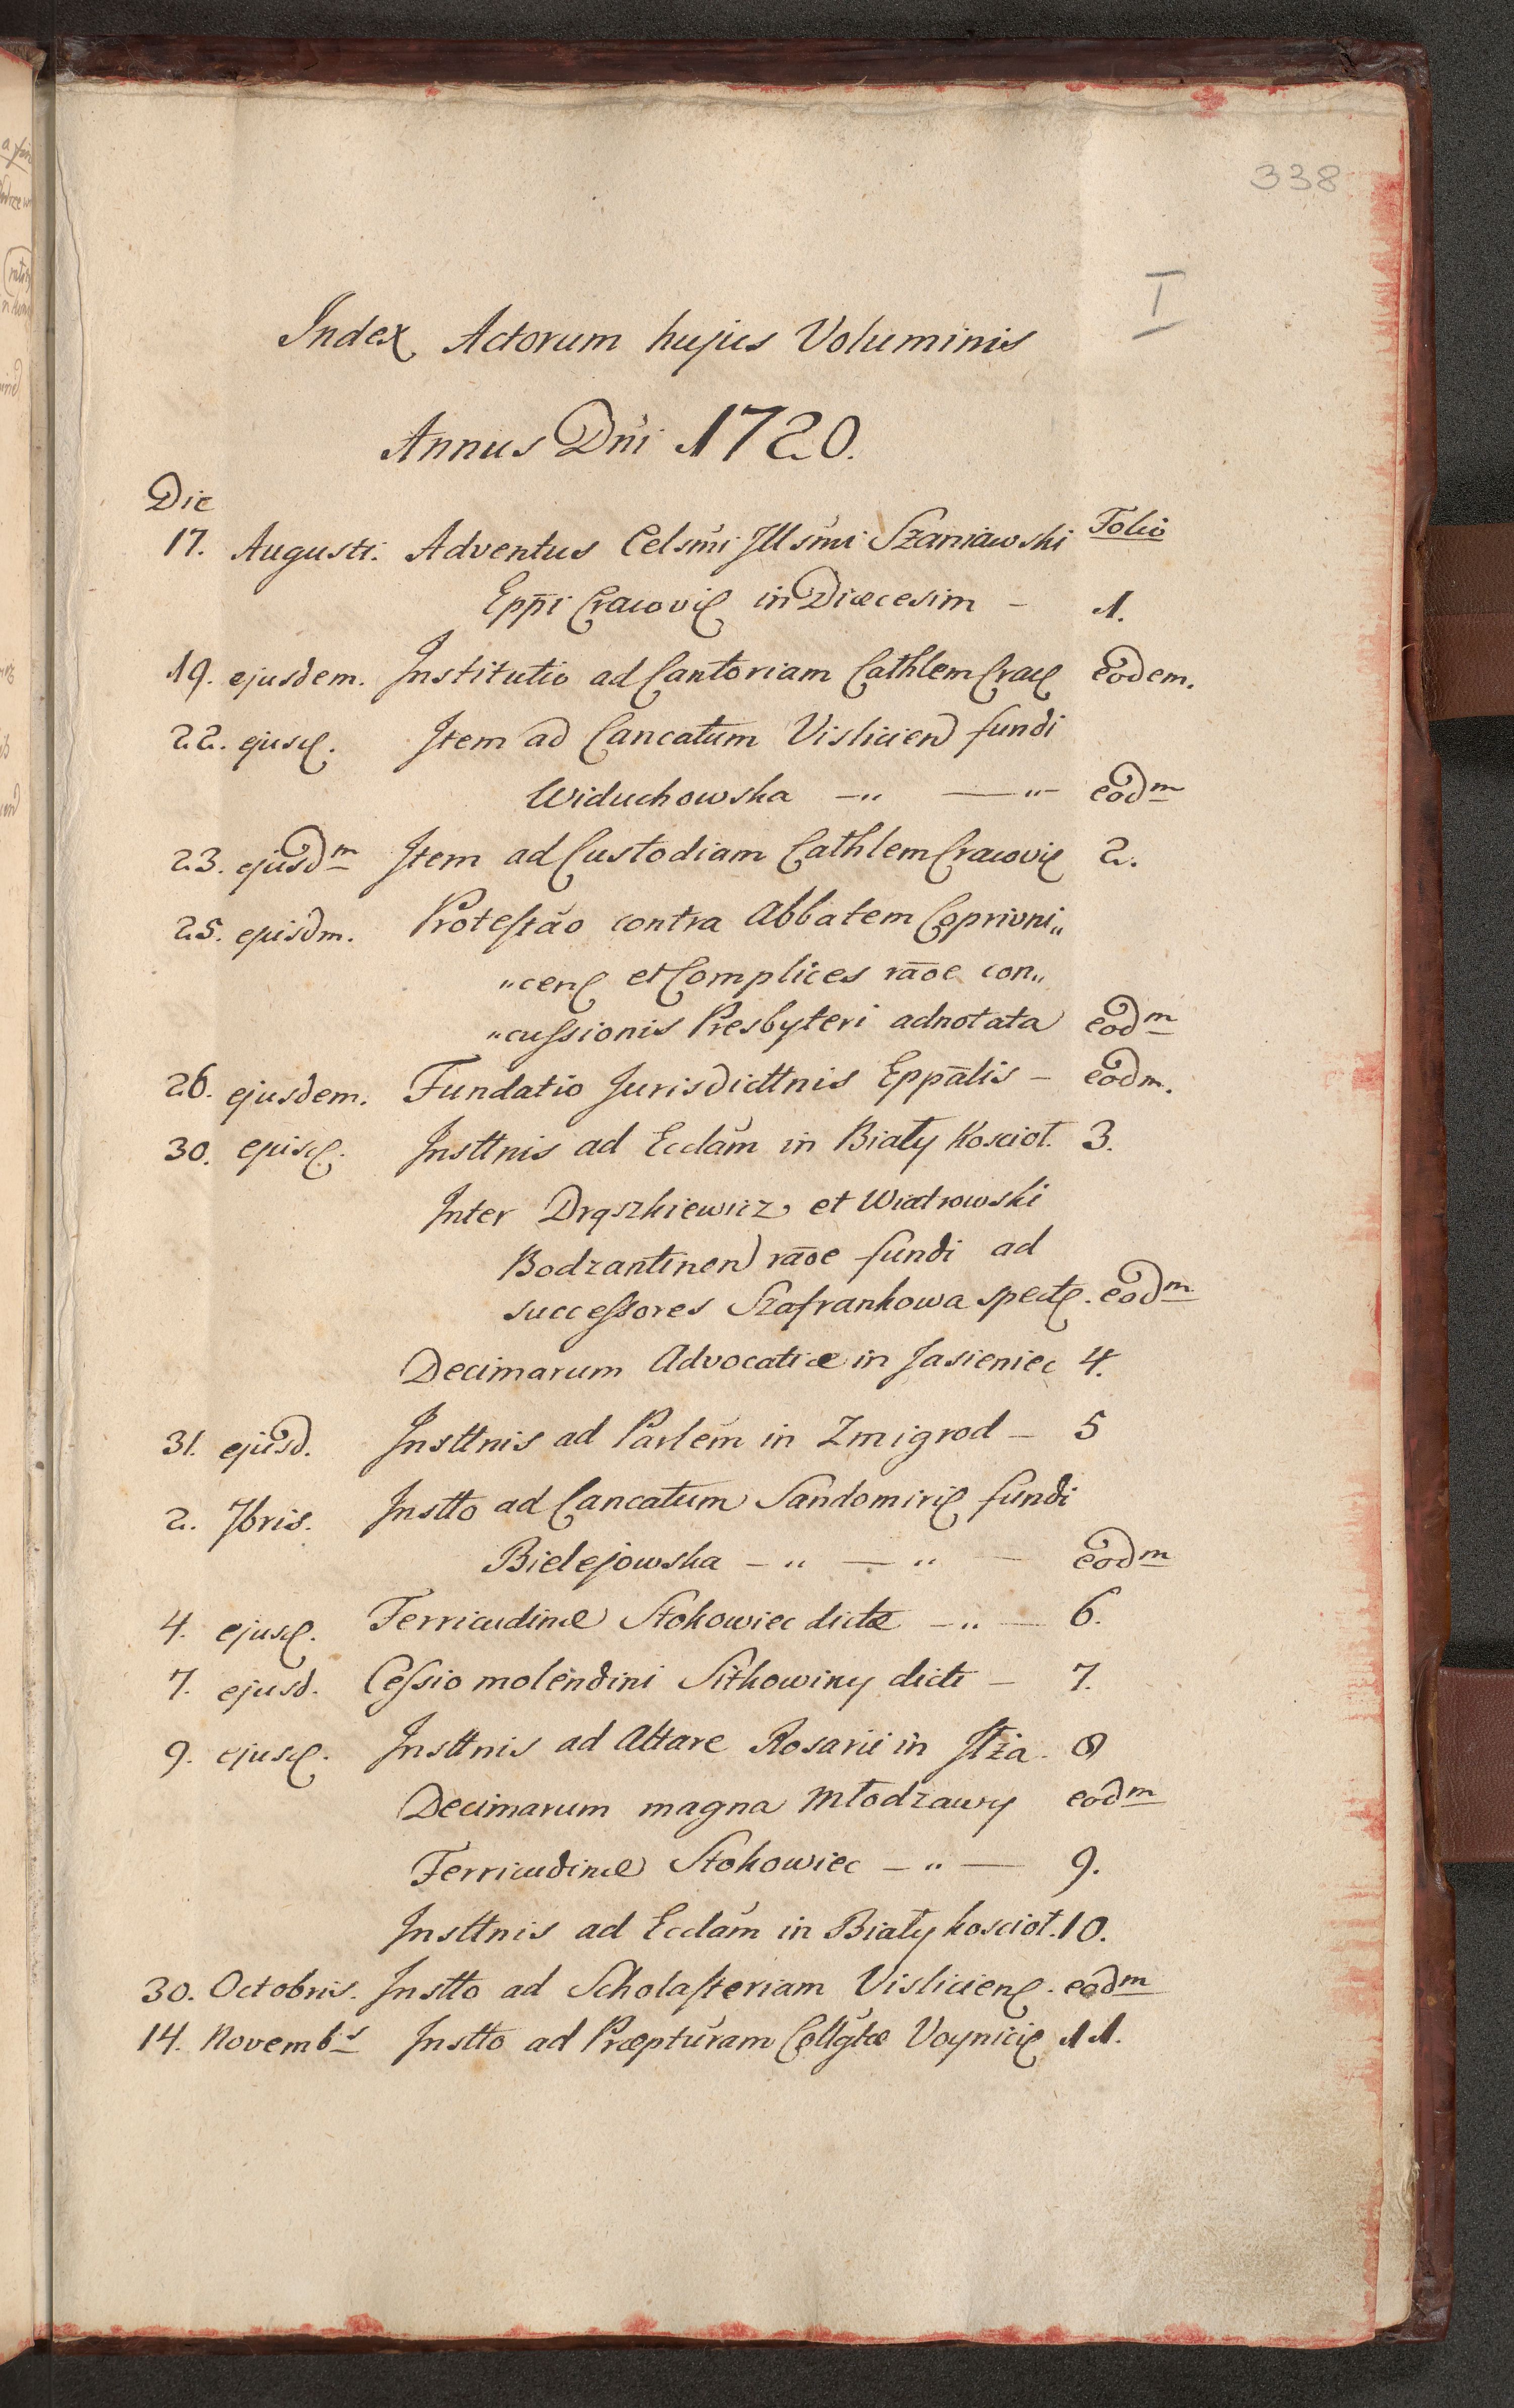 338
I
Index Actorum hujus Voluminis
Annus Dni 1720.
Die
Folio
17. Augusti. Adventus Celsmi Illsmi Szaniawski
Eppi Cracovi in Diæcesim - 1.
19. ejusdem. Institutio ad Cantoriam Cathlem Crac eodem.
22. ejusd. Item ad Cancatum Vislicien fundi
Widuchowska -„ -„- eodm
23. ejusdm Item ad Custodiam Cathlem Cracovi 2.
25. ejusdm. Protestão contra Abbatem Coprivni„
„cen et Complices rāoe con„
„cussionis Presbyteri adnotata eodm
26. ejusdem. Fundatio Jurisdicttnis Eppālis - eodm.
30. ejusd. Insttnis ad Ecclam in Biały Koscioł. 3.
Inter Drąszkiewicz et Wiatrowski
Bodzantinen rāoe fundi ad
successores Szafrankowa spect. eodm
Decimarum Advocatiæ in Jasieniec 4.
31. ejusd. Insttnis ad Parlem in Zmigrod - 5
2. 7bris. Instto ad Cancatum Sandomiri fundi
Bielejowska -„ -„ - eodm
4. ejusd. Terricudinæ Stokowiec dictæ -„- 6.
7. ejusd. Cessio molendini Sitkowiny dicti - 7.
9. ejusd. Insttnis ad Altare Rosarii in Iłża. 8
Decimarum magna Młodzawy eodm
Terricudinæ Stokowiec -„- 9.
Insttnis ad Ecclam in Biały koscioł. 10.
30. Octobris. Instto ad Scholasteriam Vislicien. eodm
14. Novembs Instto ad Præpturam Collgtæ Voynici 11.